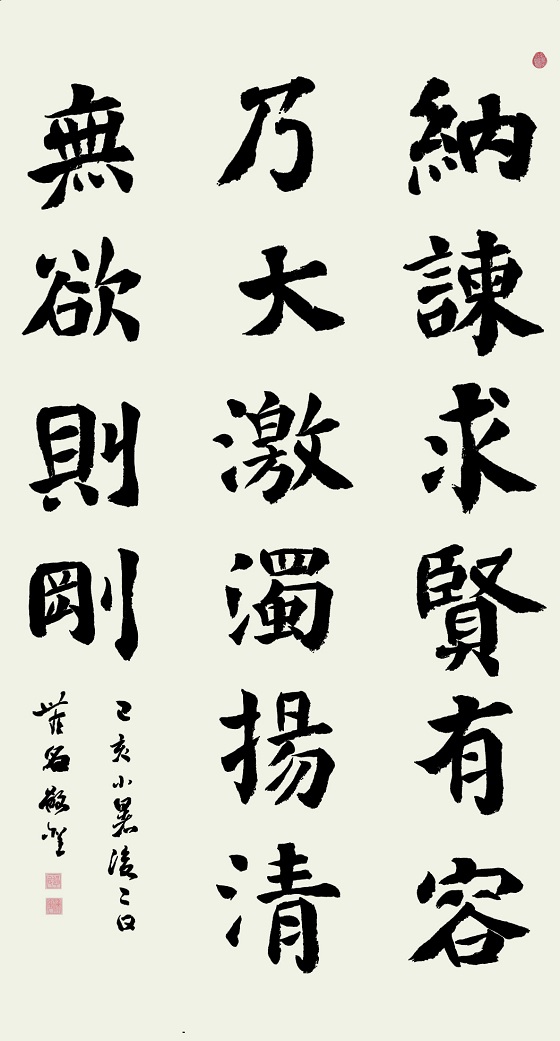 納諫求賢有容
乃大激濁揚清
無欲則剛
己亥小暑後二日